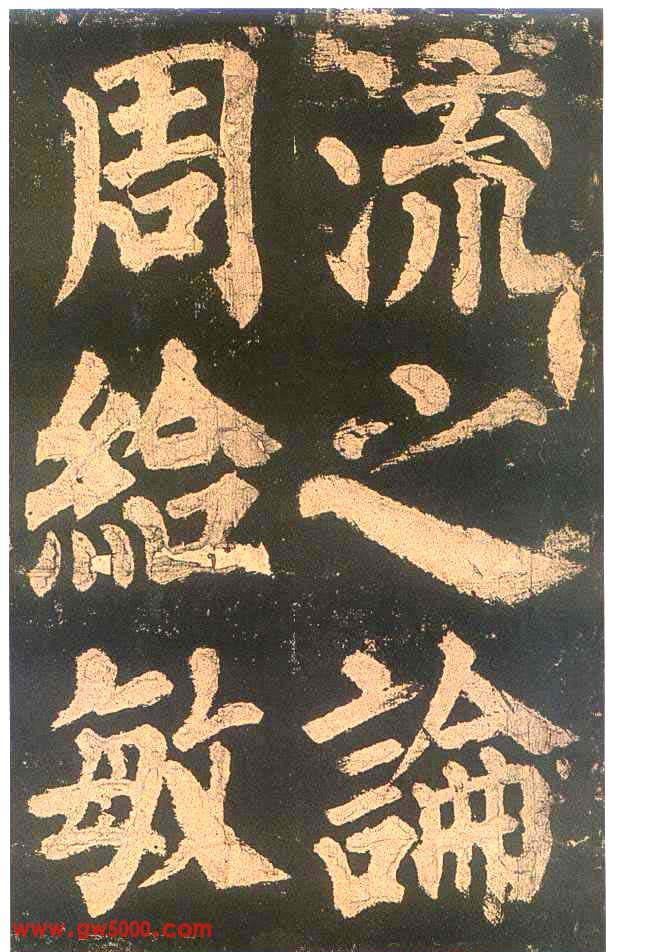 流之論
周給敏
www.gw5000.com